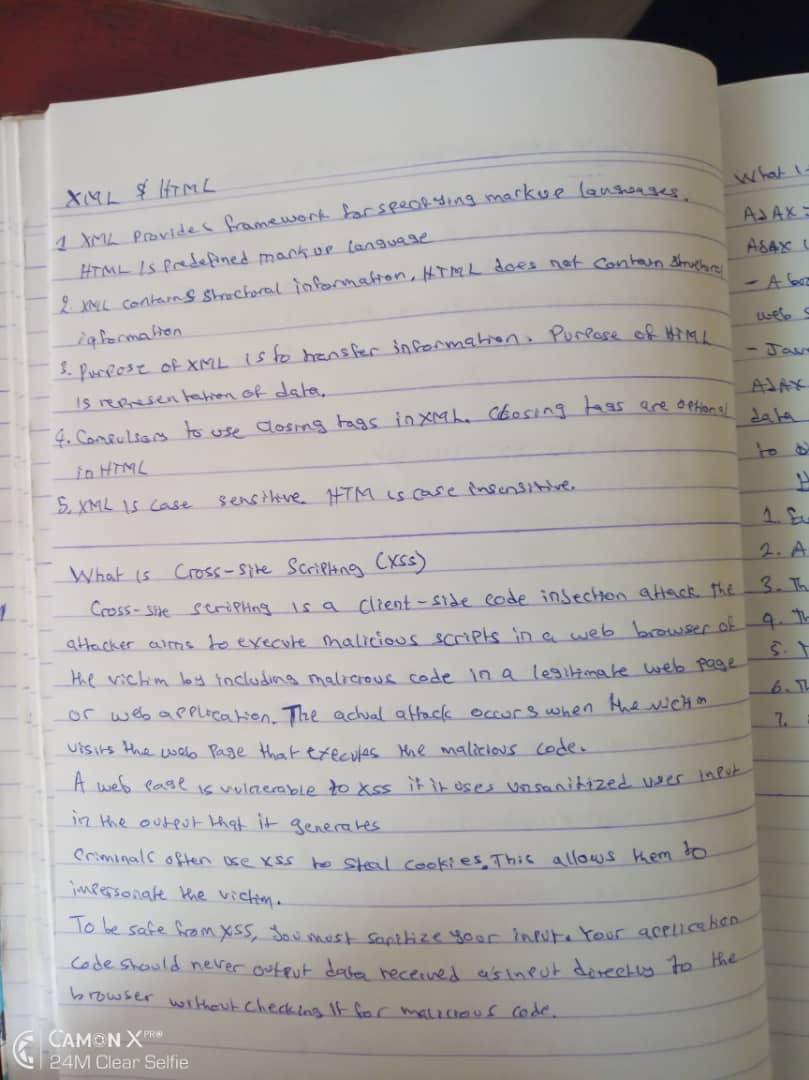 XML & HTML
1 XML Provides framework for specifying markup languages.
HTML is predefined markup language
2. XML contains structural information, HTML does not contain structural
information
3. Purpose of XML is to transfer information. Purpose of HTML
is representation of data.
4. Compulsory to use closing tags in XML. Closing tags are optional
in HTML
5. XML is case sensitive HTM is case insensitive.
What is Cross-site Scripting (XSS)
Cross-site scripting is a client-side code injection attack the
attacker aims to execute malicious scripts in a web browser of
the victim by including malicious code in a legitimate web page
or web application. The actual attack occurs when the victim
visits the web page that executes the malicious code.
A web page is vulnerable to XSS if it uses unsanitized user input
in the output that it generates
Criminals often use XSS to steal cookies. This allows them to
impersonate the victim.
To be safe from XSS, you must sanitize your input. Your application
code should never output data received as input directly to the
browser without checking it for malicious code.
What
AJAX
AJAX
- A
web s
-
AJAX
data
to
1.
2. A
3. Th
4. Th
5.
6. Th
7.
CAMON X PRO
24M Clear Selfie